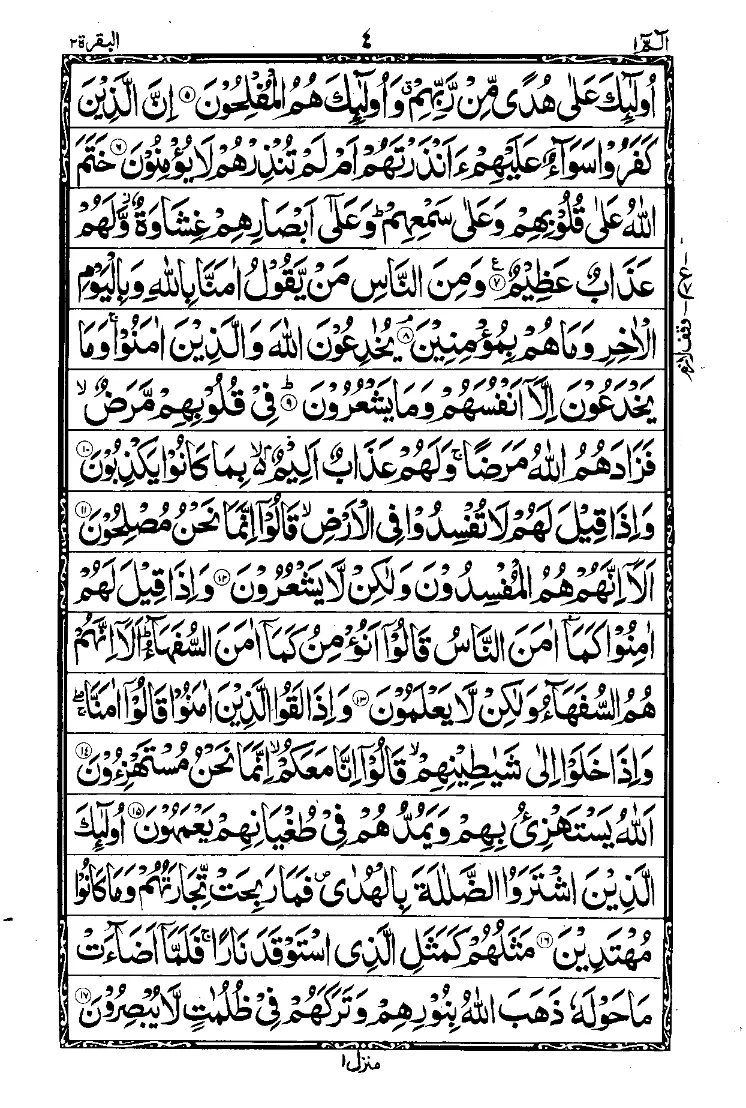 الٓمّٓ ١ ٤ البقرة ٢
اُولٰٓئِكَ عَلٰى هُدًى مِّنْ رَّبِّهِمْ ۗ وَاُولٰٓئِكَ هُمُ الْمُفْلِحُوْنَ ۝٥ اِنَّ الَّذِيْنَ
كَفَرُوْا سَوَآءٌ عَلَيْهِمْ ءَاَنْذَرْتَهُمْ اَمْ لَمْ تُنْذِرْهُمْ لَا يُؤْمِنُوْنَ ۝٦ خَتَمَ
اللّٰهُ عَلٰى قُلُوْبِهِمْ وَعَلٰى سَمْعِهِمْ ؕ وَعَلٰٓى اَبْصَارِهِمْ غِشَاوَةٌ ۫ وَّلَهُمْ
عَذَابٌ عَظِيْمٌ ۝٧ۧ وَمِنَ النَّاسِ مَنْ يَّقُوْلُ اٰمَنَّا بِاللّٰهِ وَبِالْيَوْمِ
الْاٰخِرِ وَمَا هُمْ بِمُؤْمِنِيْنَ ۘ۝٨ يُخٰدِعُوْنَ اللّٰهَ وَالَّذِيْنَ اٰمَنُوْا ۚ وَمَا
يَخْدَعُوْنَ اِلَّآ اَنْفُسَهُمْ وَمَا يَشْعُرُوْنَ ؕ۝٩ فِيْ قُلُوْبِهِمْ مَّرَضٌ ۙ
فَزَادَهُمُ اللّٰهُ مَرَضًا ۚ وَلَهُمْ عَذَابٌ اَلِيْمٌ ۙ۬ بِمَا كَانُوْا يَكْذِبُوْنَ ۝١٠
وَاِذَا قِيْلَ لَهُمْ لَا تُفْسِدُوْا فِى الْاَرْضِ ۙ قَالُوْٓا اِنَّمَا نَحْنُ مُصْلِحُوْنَ ۝١١
اَلَآ اِنَّهُمْ هُمُ الْمُفْسِدُوْنَ وَلٰكِنْ لَّا يَشْعُرُوْنَ ۝١٢ وَاِذَا قِيْلَ لَهُمْ
اٰمِنُوْا كَمَآ اٰمَنَ النَّاسُ قَالُوْٓا اَنُؤْمِنُ كَمَآ اٰمَنَ السُّفَهَآءُ ؕ اَلَآ اِنَّهُمْ
هُمُ السُّفَهَآءُ وَلٰكِنْ لَّا يَعْلَمُوْنَ ۝١٣ وَاِذَا لَقُوا الَّذِيْنَ اٰمَنُوْا قَالُوْٓا اٰمَنَّا ۖۚ
وَاِذَا خَلَوْا اِلٰى شَيٰطِيْنِهِمْ ۙ قَالُوْٓا اِنَّا مَعَكُمْ ۙ اِنَّمَا نَحْنُ مُسْتَهْزِءُوْنَ ۝١٤
اَللّٰهُ يَسْتَهْزِئُ بِهِمْ وَيَمُدُّهُمْ فِيْ طُغْيَانِهِمْ يَعْمَهُوْنَ ۝١٥ اُولٰٓئِكَ
الَّذِيْنَ اشْتَرَوُا الضَّلٰلَةَ بِالْهُدٰى ۪ فَمَا رَبِحَتْ تِّجَارَتُهُمْ وَمَا كَانُوْا
مُهْتَدِيْنَ ۝١٦ مَثَلُهُمْ كَمَثَلِ الَّذِى اسْتَوْقَدَ نَارًا ۚ فَلَمَّآ اَضَآءَتْ
مَا حَوْلَهٗ ذَهَبَ اللّٰهُ بِنُوْرِهِمْ وَتَرَكَهُمْ فِيْ ظُلُمٰتٍ لَّا يُبْصِرُوْنَ ۝١٧
منزل ١
وقف لازم